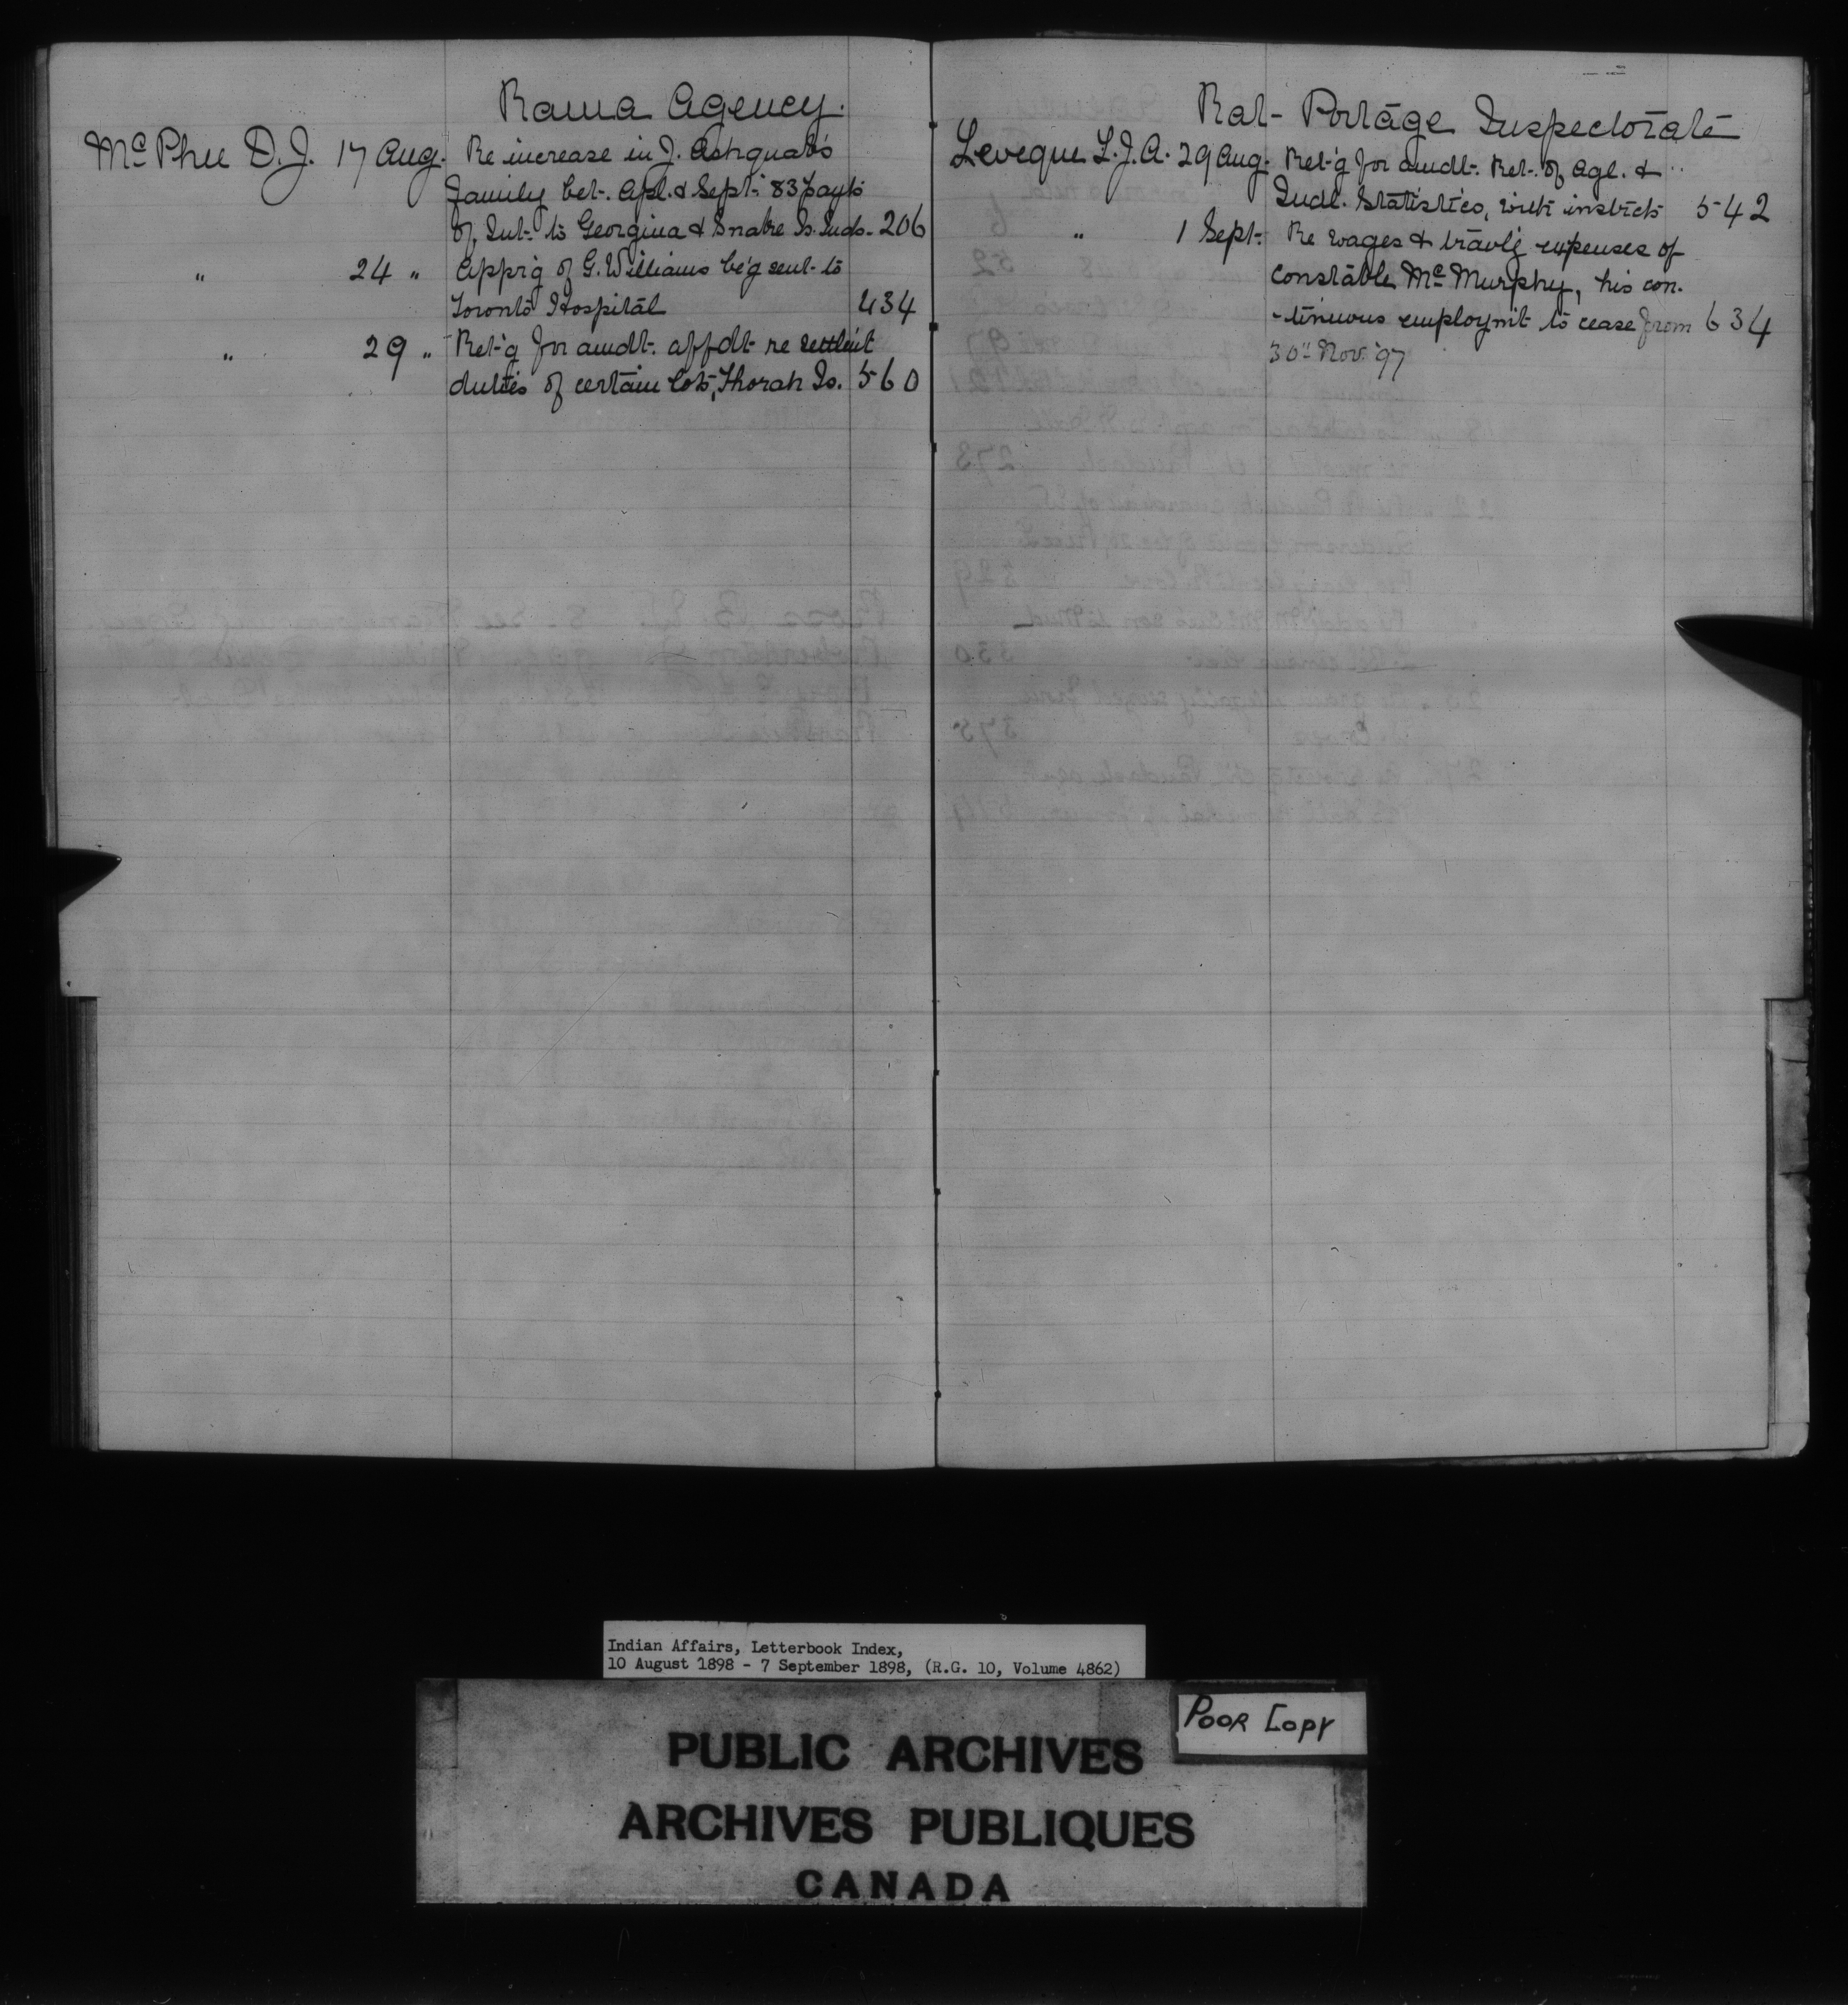 Rama Agency.
McPhee D.J. 17 Aug. Re increase in J. Ashquab's
family bet. Apl. & Sept. '83 payts
of Int. to Georgina & Snake Is. Inds. 206
" 24 " Apprg of G. Williams be'g sent to
Toronto Hospital 434
" 29 " Ret'g for amdt. affdt re settle't
duties of certain lots, Thorah Is. 560
Rat-Portage Inspectorate
Leveque L.J.A. 29 Aug. Ret'g for amdt. Ret. of Agl. &
Indl. Statistics, with instrcts 542
" 1 Sept. Re wages & travlg expenses of
Constable McMurphy, his con-
-tinuous employm't to cease from 634
30" Nov. '97
Indian Affairs, Letterbook Index,
10 August 1898 - 7 September 1898, (R.G. 10, Volume 4862)
Poor Copy
PUBLIC ARCHIVES
ARCHIVES PUBLIQUES
CANADA